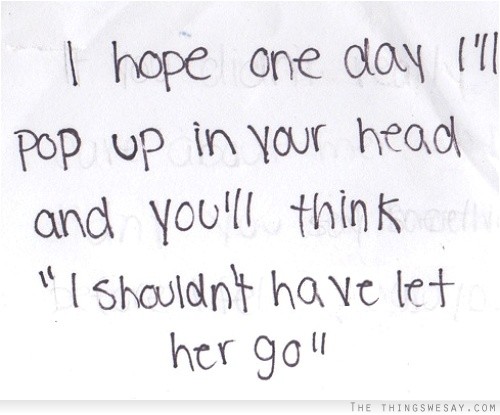 I hope one day I'll
pop up in your head
and you'll think
"I shouldn't have let
her go"
THE THINGSWESAY.COM